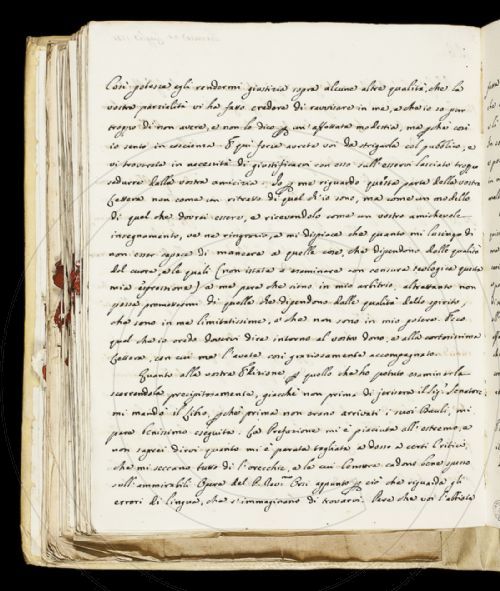 Così potesse egli rendermi giustizia sopra alcune altre qualità, che la
vostra parzialità vi ha fatto credere di ravvisare in me, e che io so pur
troppo di non avere, e non lo dico per un'affettata modestia, ma perché così
io sento in coscienza. E qui forse avrete voi da strigarla col pubblico, e
vi troverete in necessità di giustificarvi con esso sull'esservi lasciato troppo
sedurre dalla vostra amicizia. Io per me riguardo questa parte della vostra
Lettera non come un ritratto di quel ch'io sono, ma come un modello
di quel che dovrei essere, e ricevendolo come un vostro amichevole
insegnamento, ve ne ringrazio, e mi dispiace che quanto mi lusingo di
non esser capace di mancare a quelle cose, che dipendono dalle qualità
del cuore, e le quali (non istate a esaminare con censura teologica questa
mia espressione) a me pare che sieno in mio arbitrio, altrettanto non
possa promettermi di quelle che dipendono dalle qualità dello spirito,
che sono in me limitatissime, e che non sono in mio potere. Ecco
quel che io credo dovervi dire intorno al vostro dono, e alla cortesissima
Lettera, con cui me l'avete così graziosamente accompagnato.
Quanto alla vostra Edizione per quello che ho potuto esaminarla
scorrendola precipitosamente, giacché non prima di jeri sera il Sig. Senatore
mi mandò il Libro, perché prima non erano arrivati i suoi Bauli, mi
pare benissimo eseguita. La Prefazione mi è piaciuta all'estremo, e
non saprei dirvi quanto mi è parata tagliata a dosso a certi Critici,
che mi seccano tutto dì l'orecchie, e le cui censure cadono bene spesso
sull'ammirabili Opere del P. Corsi appunto per ciò che riguarda gli
errori di lingua, che s'immaginano di trovarvi. Pare che voi l'abbiate